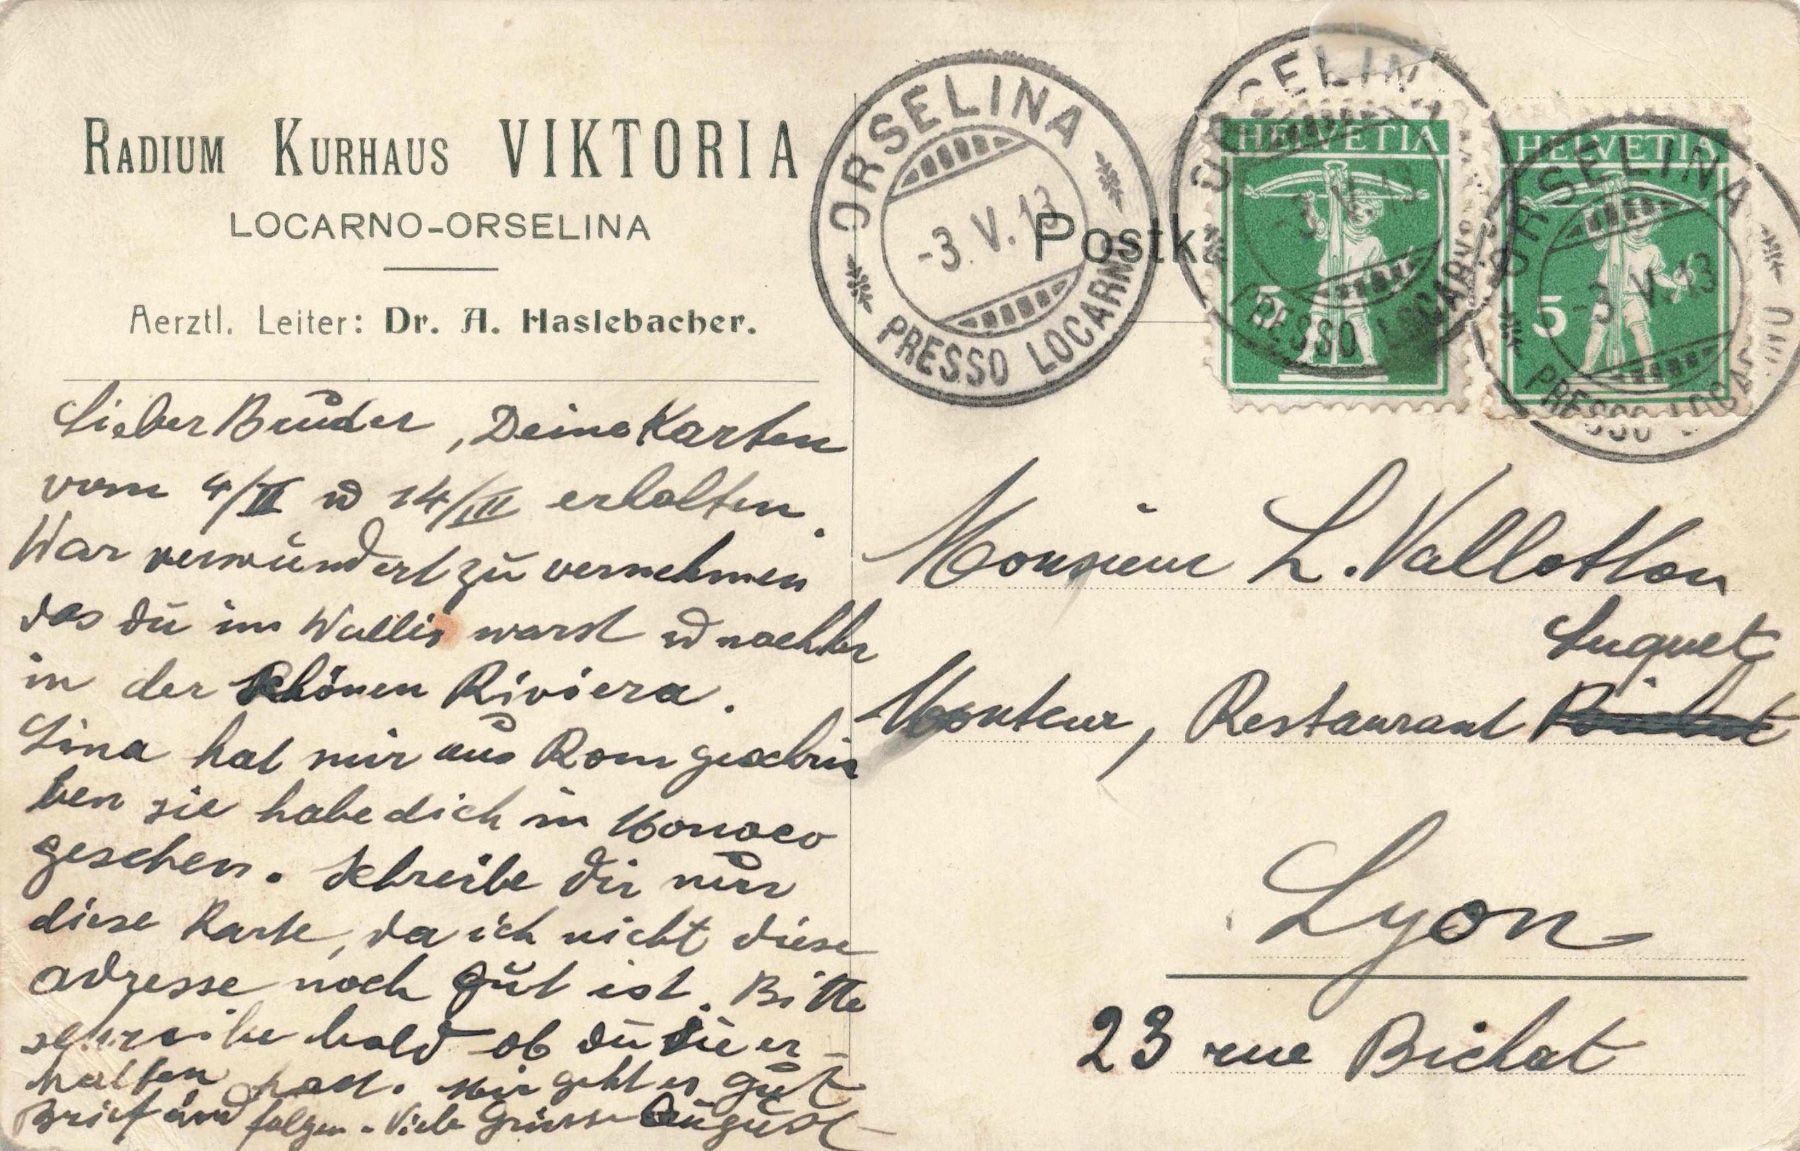 RADIUM KURHAUS VIKTORIA
LOCARNO-ORSELINA
Aerztl. Leiter: Dr. A. Haslebacher.
Lieber Bruder, Deine Karten
vom 4/II u 14/III erhalten.
War verwundert zu vernehmen
das du im Wallis warst u nachher
in der schönen Riviera.
Lina hat mir aus Rom geschrie
ben sie habe dich in Monaco
gesehen. Schreibe dir nur
diese Karte, da ich nicht diese
adresse noch gut ist. Bitte
schreibe bald ob du sie er-
halten hast. Mir geht es gut
Brief wird folgen. Viele Grüsse August
ORSELINA
-3.V.13
PRESSO LOCARNO
Postk
ORSELINA
-3.V.13
PRESSO LOCARNO
HELVETIA
5
ORSELINA
-3.V.13
PRESSO LOCARNO
HELVETIA
5
Monsieur L. Vallotton
Suquet
Monteur, Restaurant
Lyon
23 rue Bichat